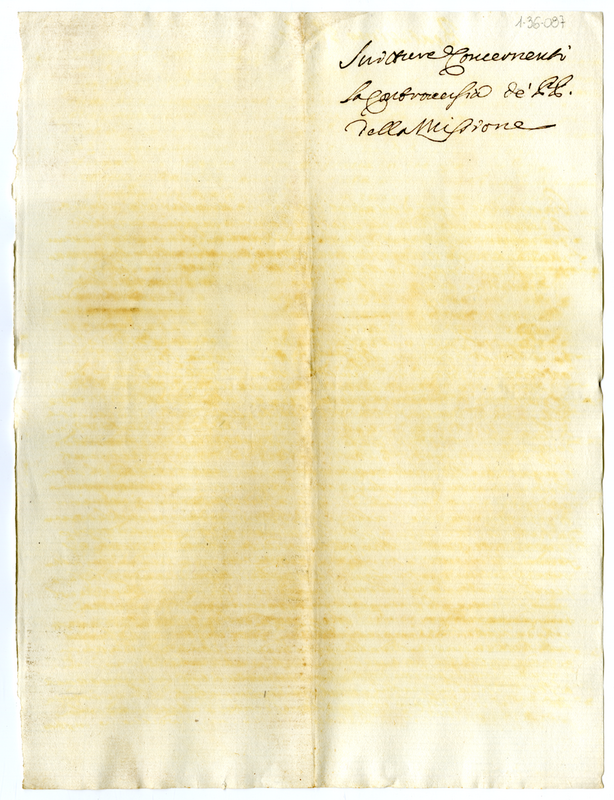 1-36-087
Scritture Concernenti
la Controversia de' PP.
della Missione